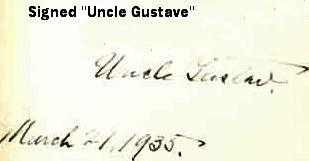 Signed "Uncle Gustave"
Uncle Gustav.
March 21, 1935.